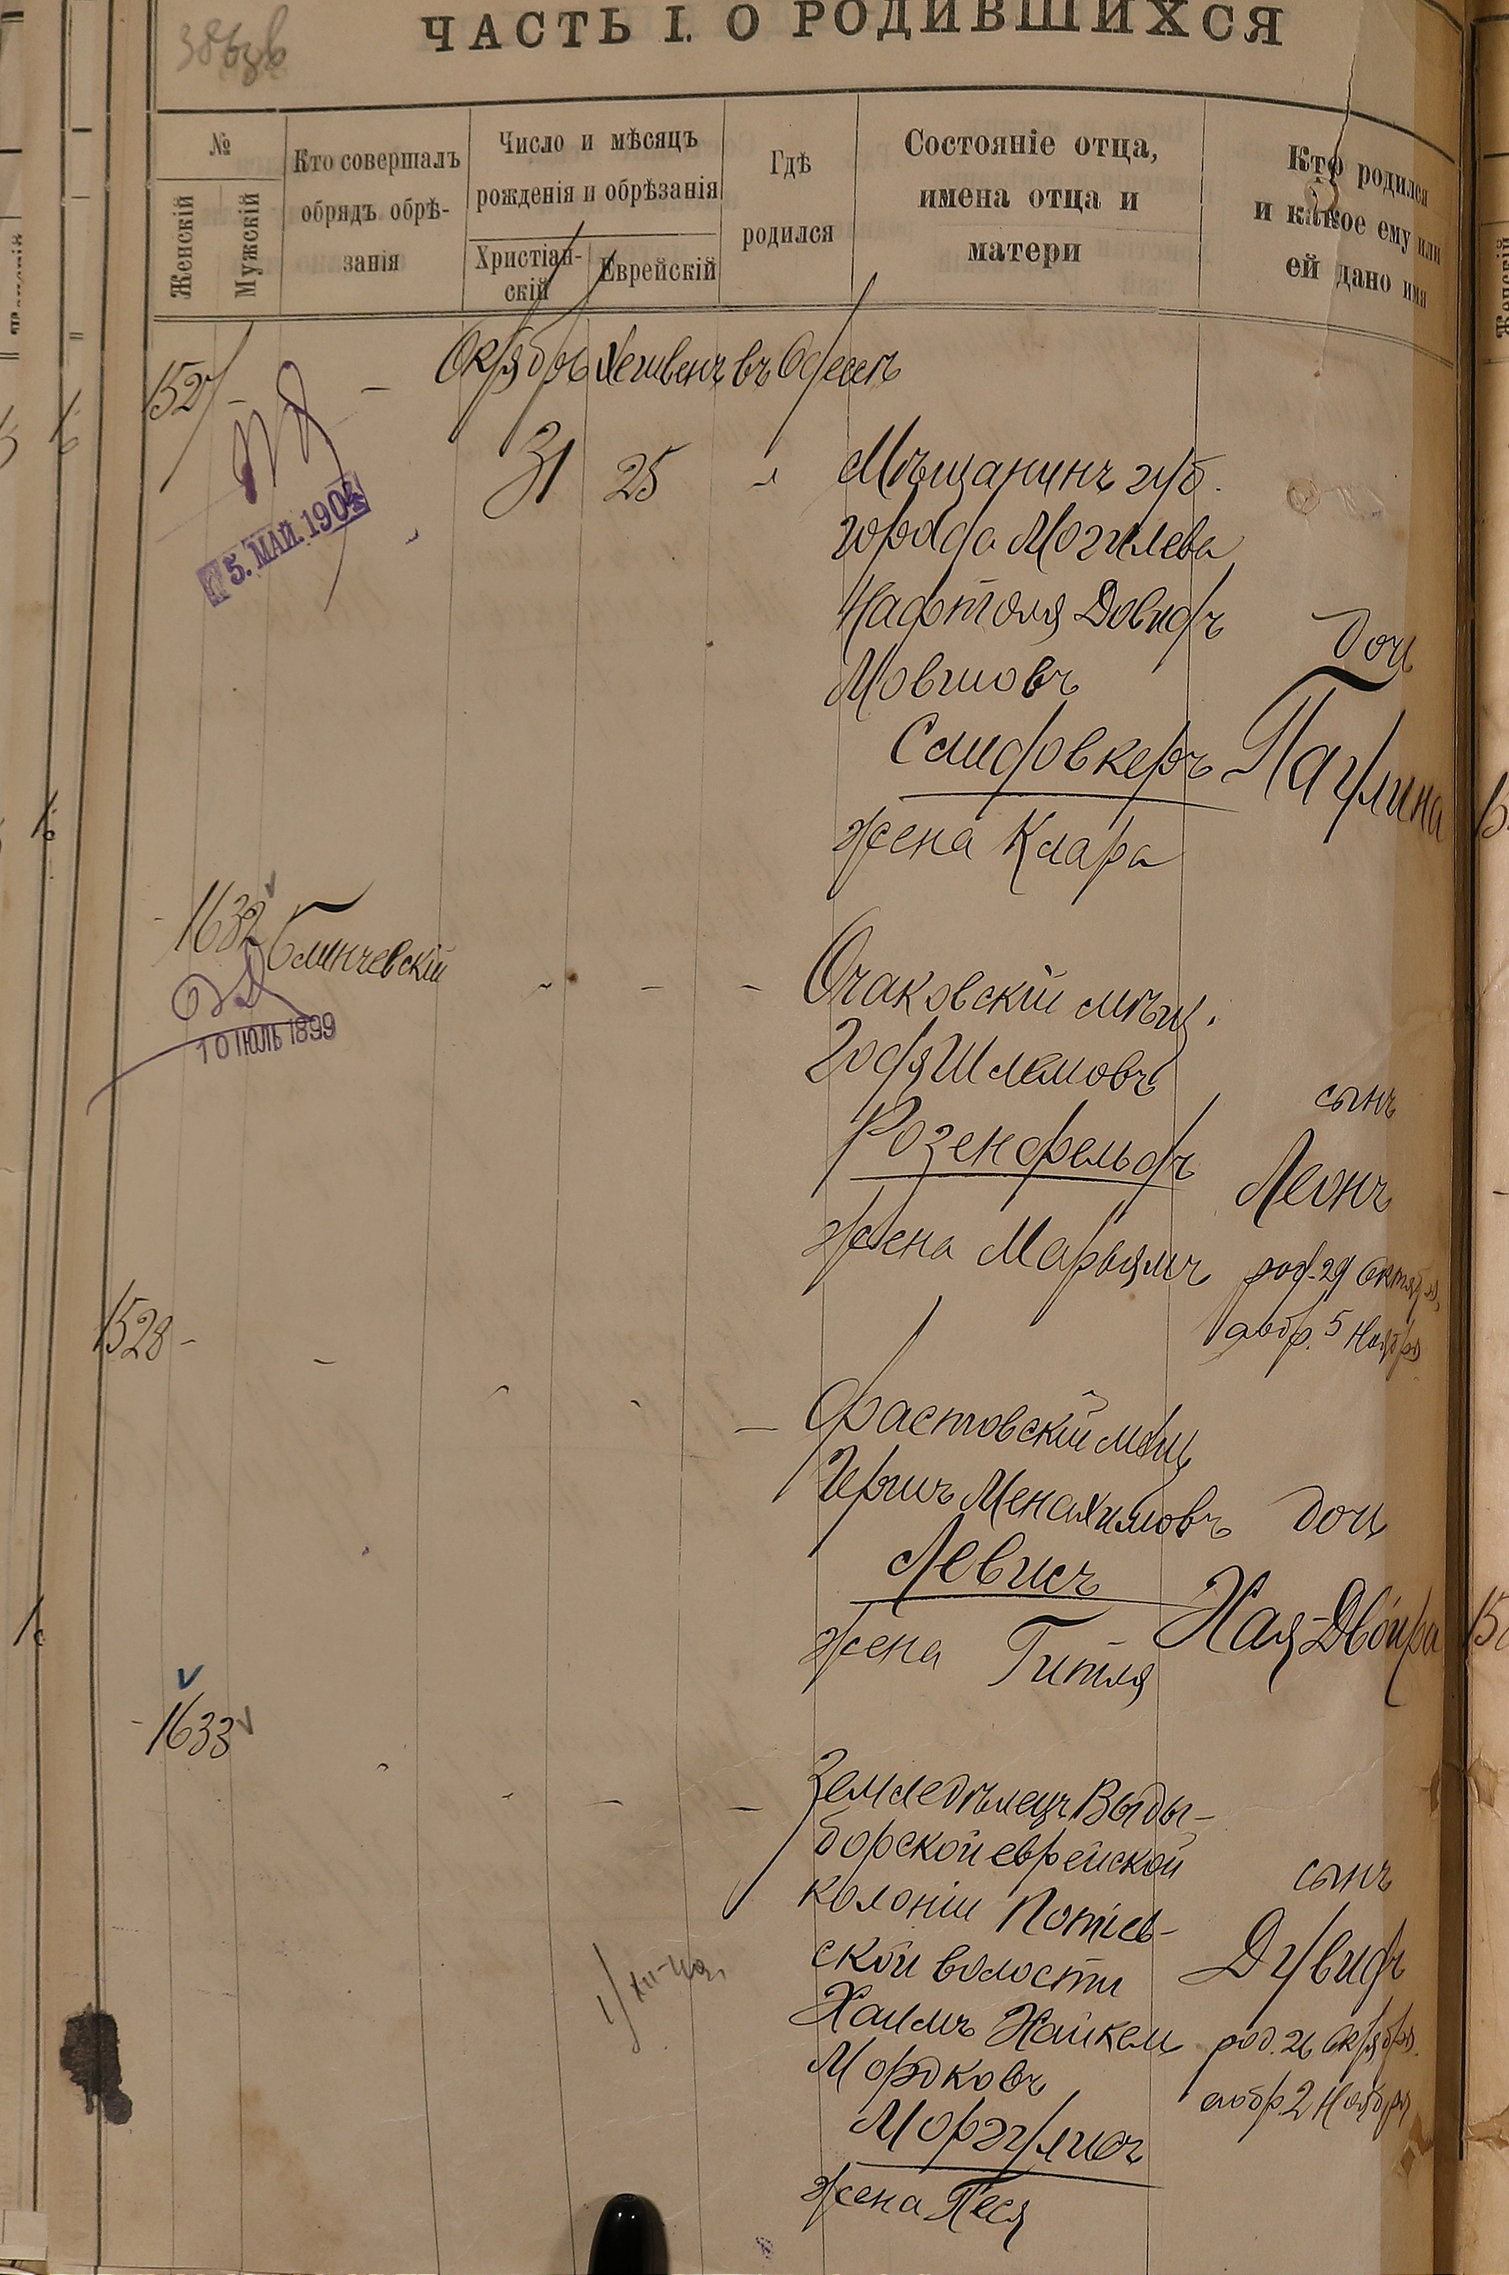 ЧАСТЬ I. О РОДИВШИХСЯ
№
Женскій
Мужскій
Кто совершалъ
обрядъ обрѣ-
занія
Число и мѣсяцъ
рожденія и обрѣзанія
Христіан-
скій
Еврейскій
Гдѣ
родился
Состояніе отца,
имена отца и
матери
Кто родился
и какое ему или
ей дано имя
1527 - - Октябрь Хешвенъ въ Одессѣ
31 25
5. МАЙ. 1904
Мѣщанинъ губ.
города Могилева
Нафтоля Довидъ
Мовшовъ
Смидовкеръ
жена Клара
дочь
Паулина
- 1632 Блинчевскій - - -
10 ІЮЛЬ 1899
Очаковскій мѣщ.
Годя Шлемовъ
Розенфельдъ
жена Марьямъ
сынъ
Леонъ
род. 29 Октября,
обр. 5 Ноября
1528 - - -
Фастовскій мѣщ
Гершъ Менахимовъ
Левисъ
жена Гитля
дочь
Хая-Двойра
- 1633 - -
Земледѣлецъ Выды-
борской еврейской
колоніи Потіев-
ской волости
Хаимъ Хайкель
Мордковъ
Моргулисъ
жена Песя
сынъ
Дувидъ
род. 26 Октября.
обр. 2 Ноября